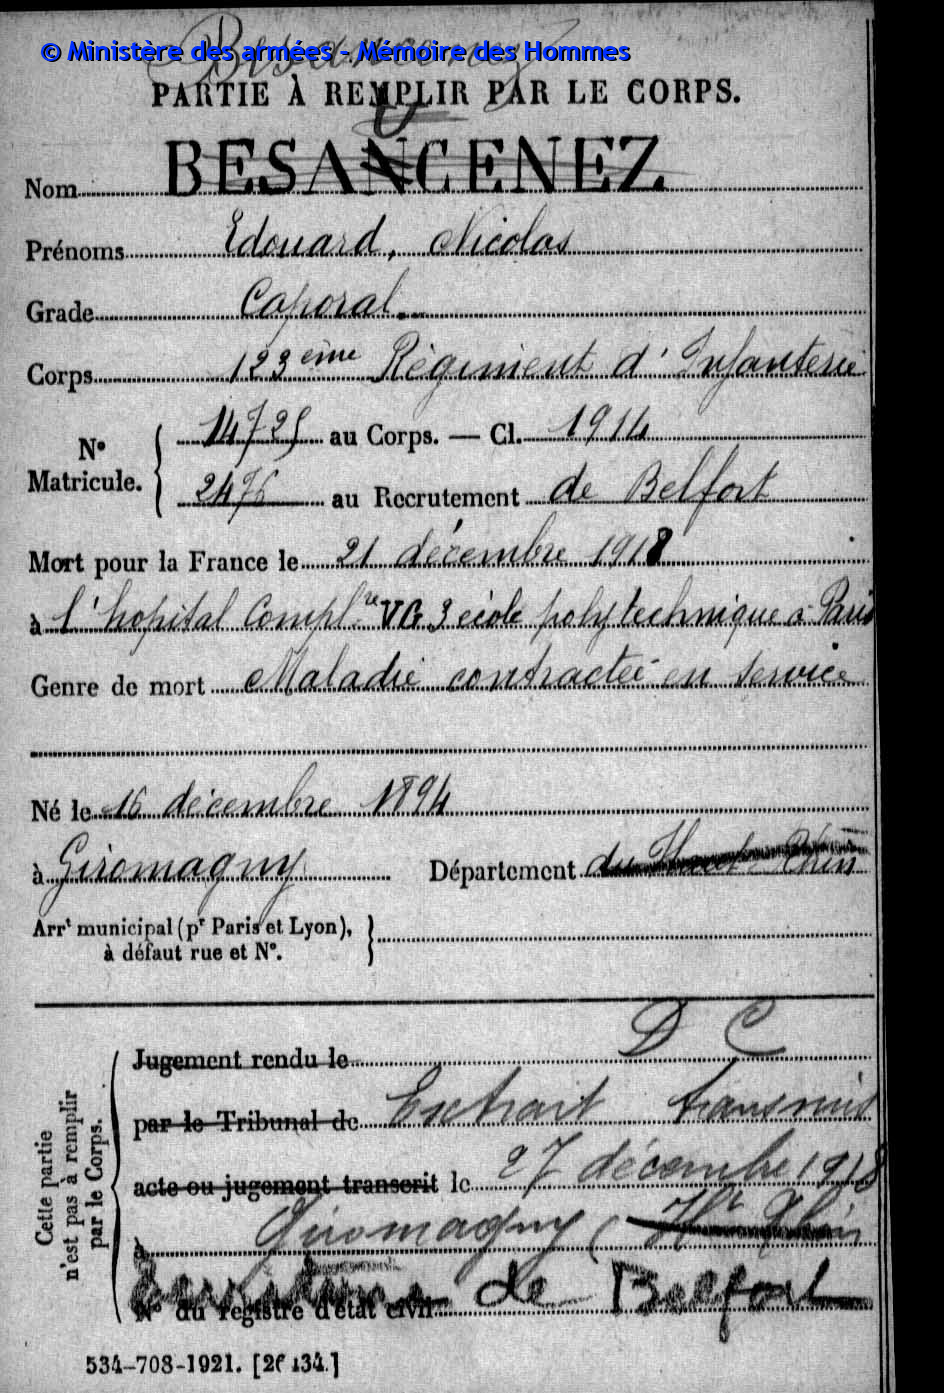 © Ministère des armées - Mémoire des Hommes
PARTIE À REMPLIR PAR LE CORPS.
Nom BESANCENEZ
Prénoms Edouard, Nicolas
Grade Caporal
Corps 123ème Régiment d'Infanterie
N° Matricule. { 14725 au Corps. — Cl. 1914
2476 au Recrutement de Belfort
Mort pour la France le 21 décembre 1918
à l'hopital Complre VG 3 école polytechnique à Paris
Genre de mort Maladie contractée en service
Né le 16 décembre 1894
à Giromagny Département du Haut-Rhin
Arrt municipal (pr Paris et Lyon),
à défaut rue et N°.
Cette partie n'est pas à remplir par le Corps.
Jugement rendu le D C
par le Tribunal de Extrait transmis
acte ou jugement transcrit le 27 décembre 1918
à Giromagny (Ht Rhin
Territoire de Belfort
N° du registre d'état civil
534-708-1921. [26434.]